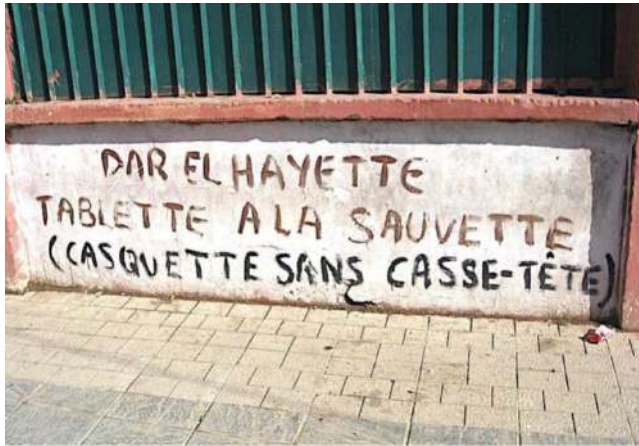 DAR EL HAYETTE
TABLETTE A LA SAUVETTE
(CASQUETTE SANS CASSE-TÊTE)